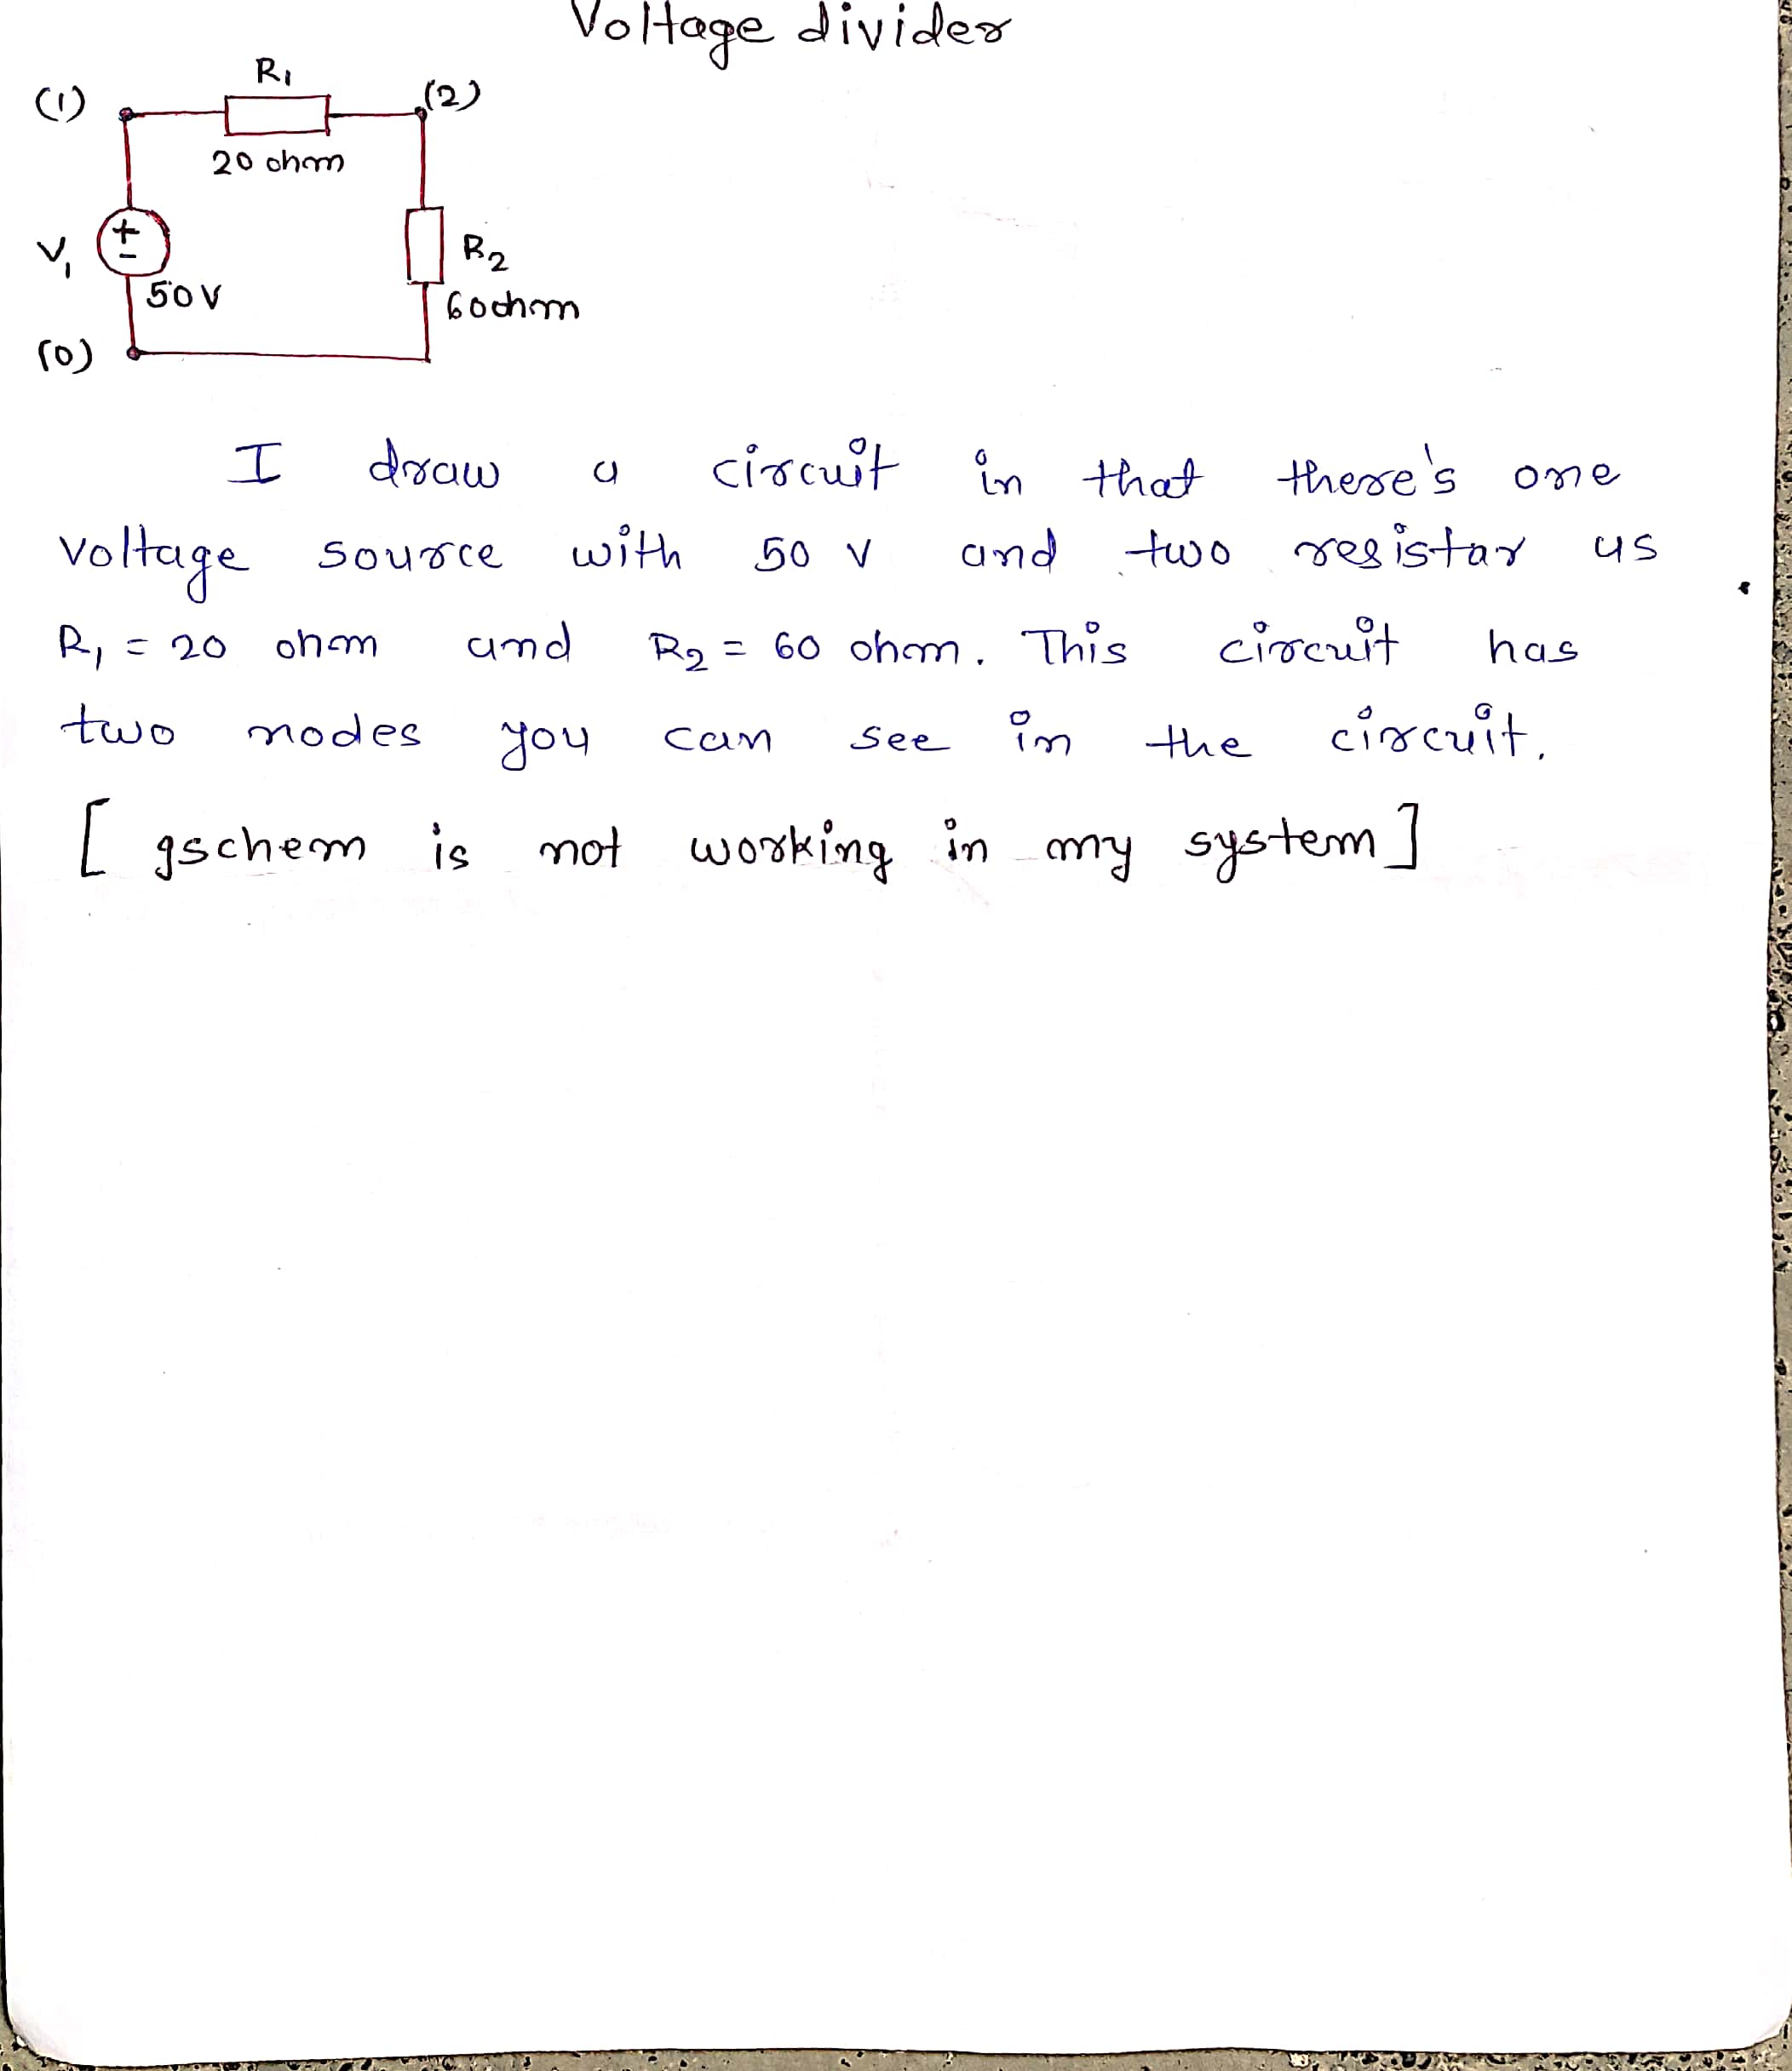 Voltage divider
R1
(1)
(2)
20 ohm
+
-
V1
50V
R2
60ohm
(0)
I draw a circuit in that there's one
voltage source with 50 V and two resistar as
R1 = 20 ohm and R2 = 60 ohm. This circuit has
two nodes you can see in the circuit.
[ gschem is not working in my system ]